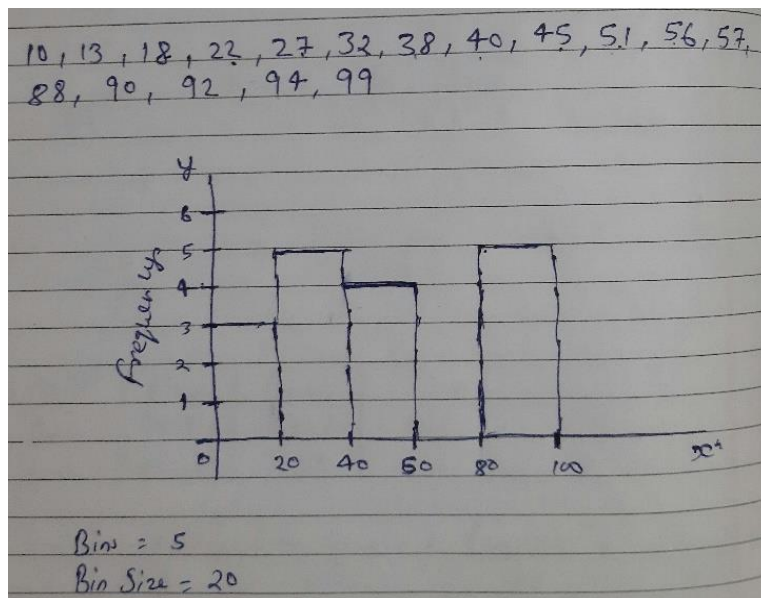 10, 13, 18, 22, 27, 32, 38, 40, 45, 51, 56, 57,
88, 90, 92, 94, 99
y
6
5
4
3
2
1
frequency
0 20 40 60 80 100 x
Bins = 5
Bin Size = 20